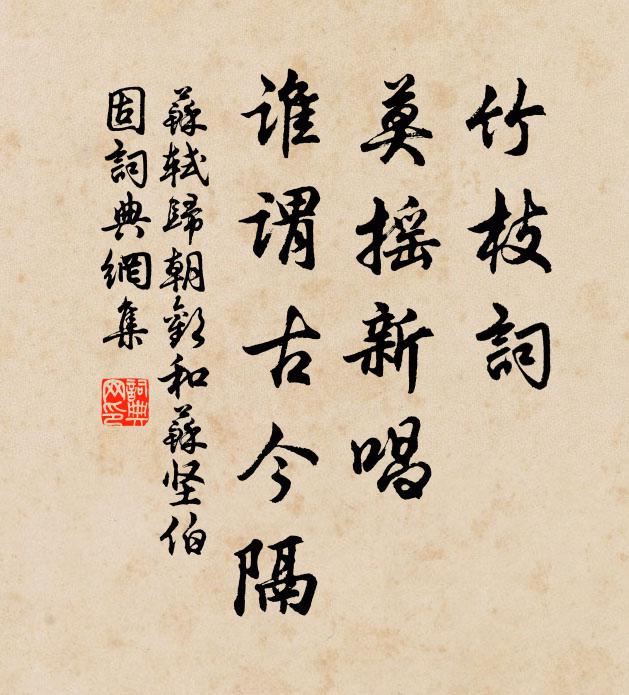 竹枝詞
莫摇新唱
谁谓古今隔
蘇轼歸朝歡和蘇坚伯
固詞典網集
詞典網印